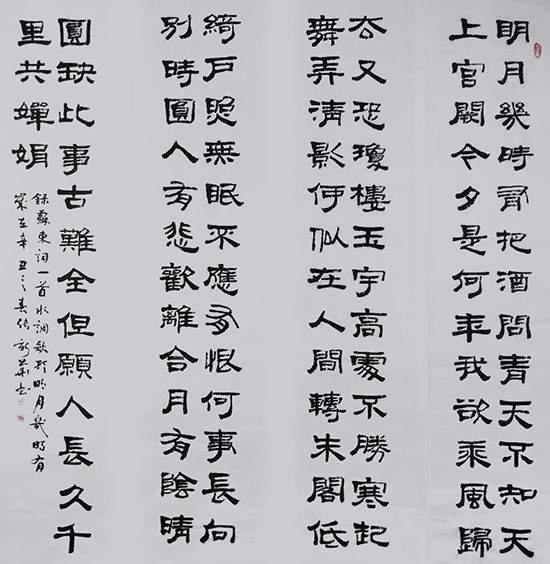 明月幾時有把酒問青天不知天
上宮闕今夕是何年我欲乘風歸
去又恐瓊樓玉宇高處不勝寒起
舞弄清影何似在人間轉朱閣低
綺戶照無眠不應有恨何事長向
別時圓人有悲歡離合月有陰晴
圓缺此事古難全但願人長久千
里共嬋娟
錄蘇東詞一首水調歌頭明月幾時有
歲在辛丑之春